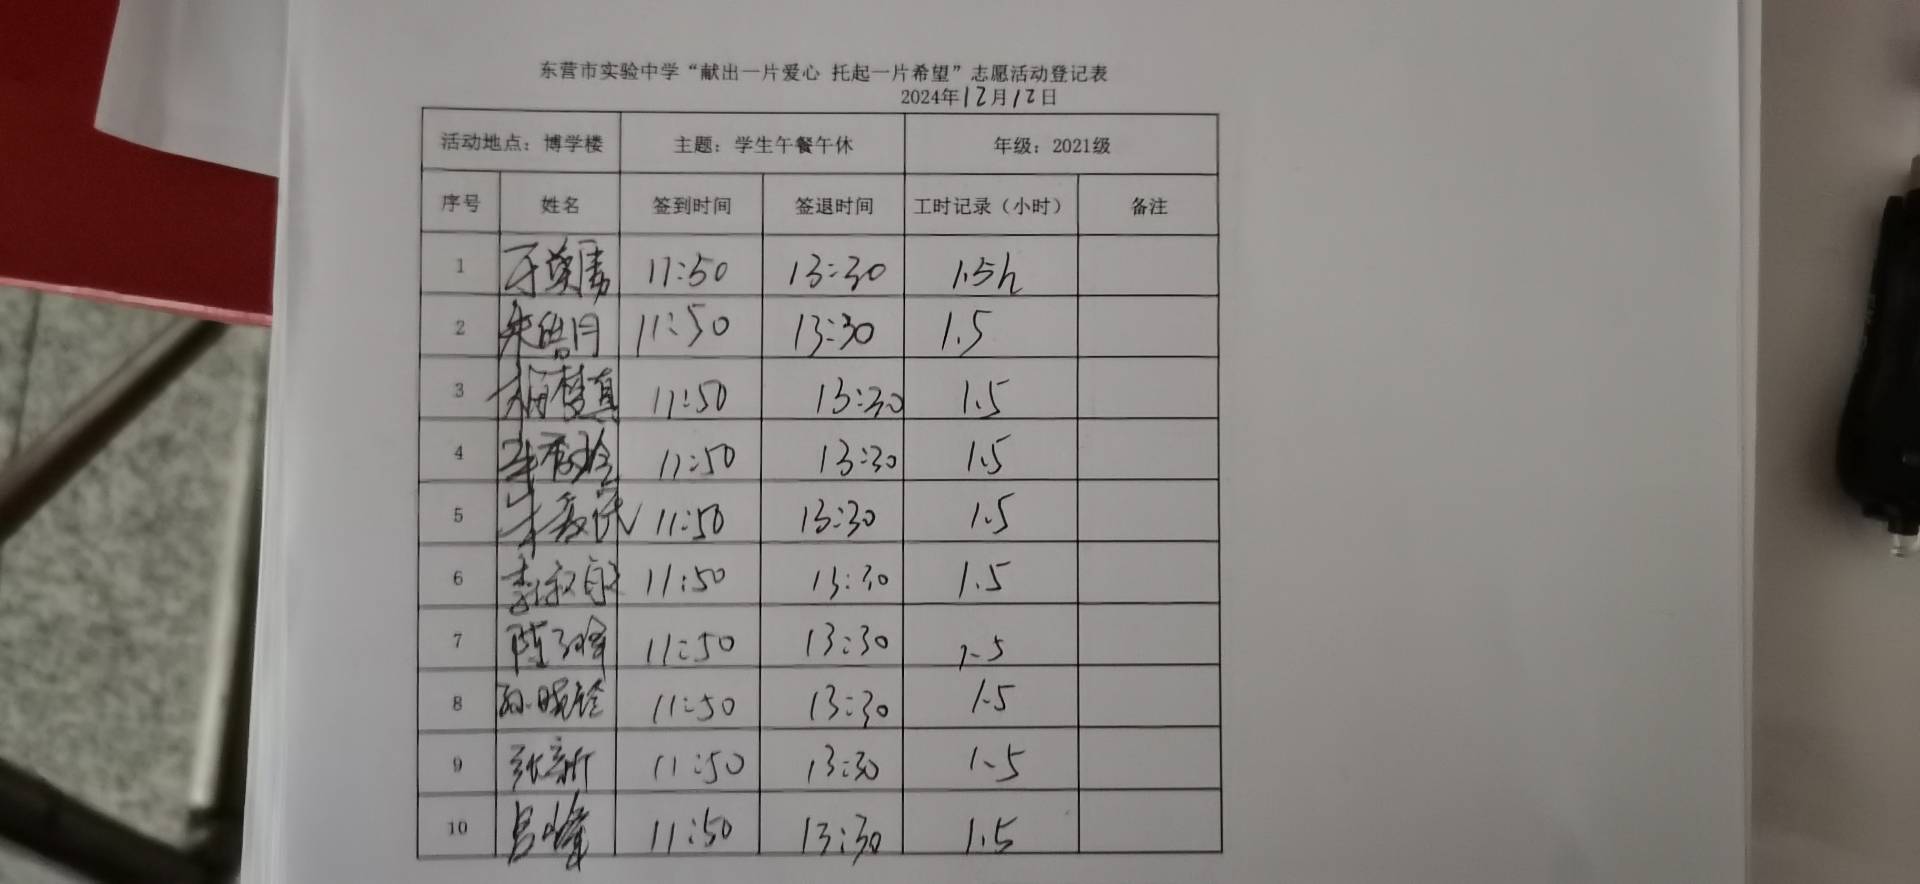 东营市实验中学“献出一片爱心 托起一片希望”志愿活动登记表
2024年12月12日
活动地点：博学楼 主题：学生午餐午休 年级：2021级
序号 姓名 签到时间 签退时间 工时记录（小时） 备注
1 11:50 13:30 1.5h
2 朱皓月 11:50 13:30 1.5
3 11:50 13:30 1.5
4 11:50 13:30 1.5
5 11:50 13:30 1.5
6 11:50 13:30 1.5
7 11:50 13:30 1.5
8 孙晓玲 11:50 13:30 1.5
9 张新 11:50 13:30 1.5
10 吕峰 11:50 13:30 1.5